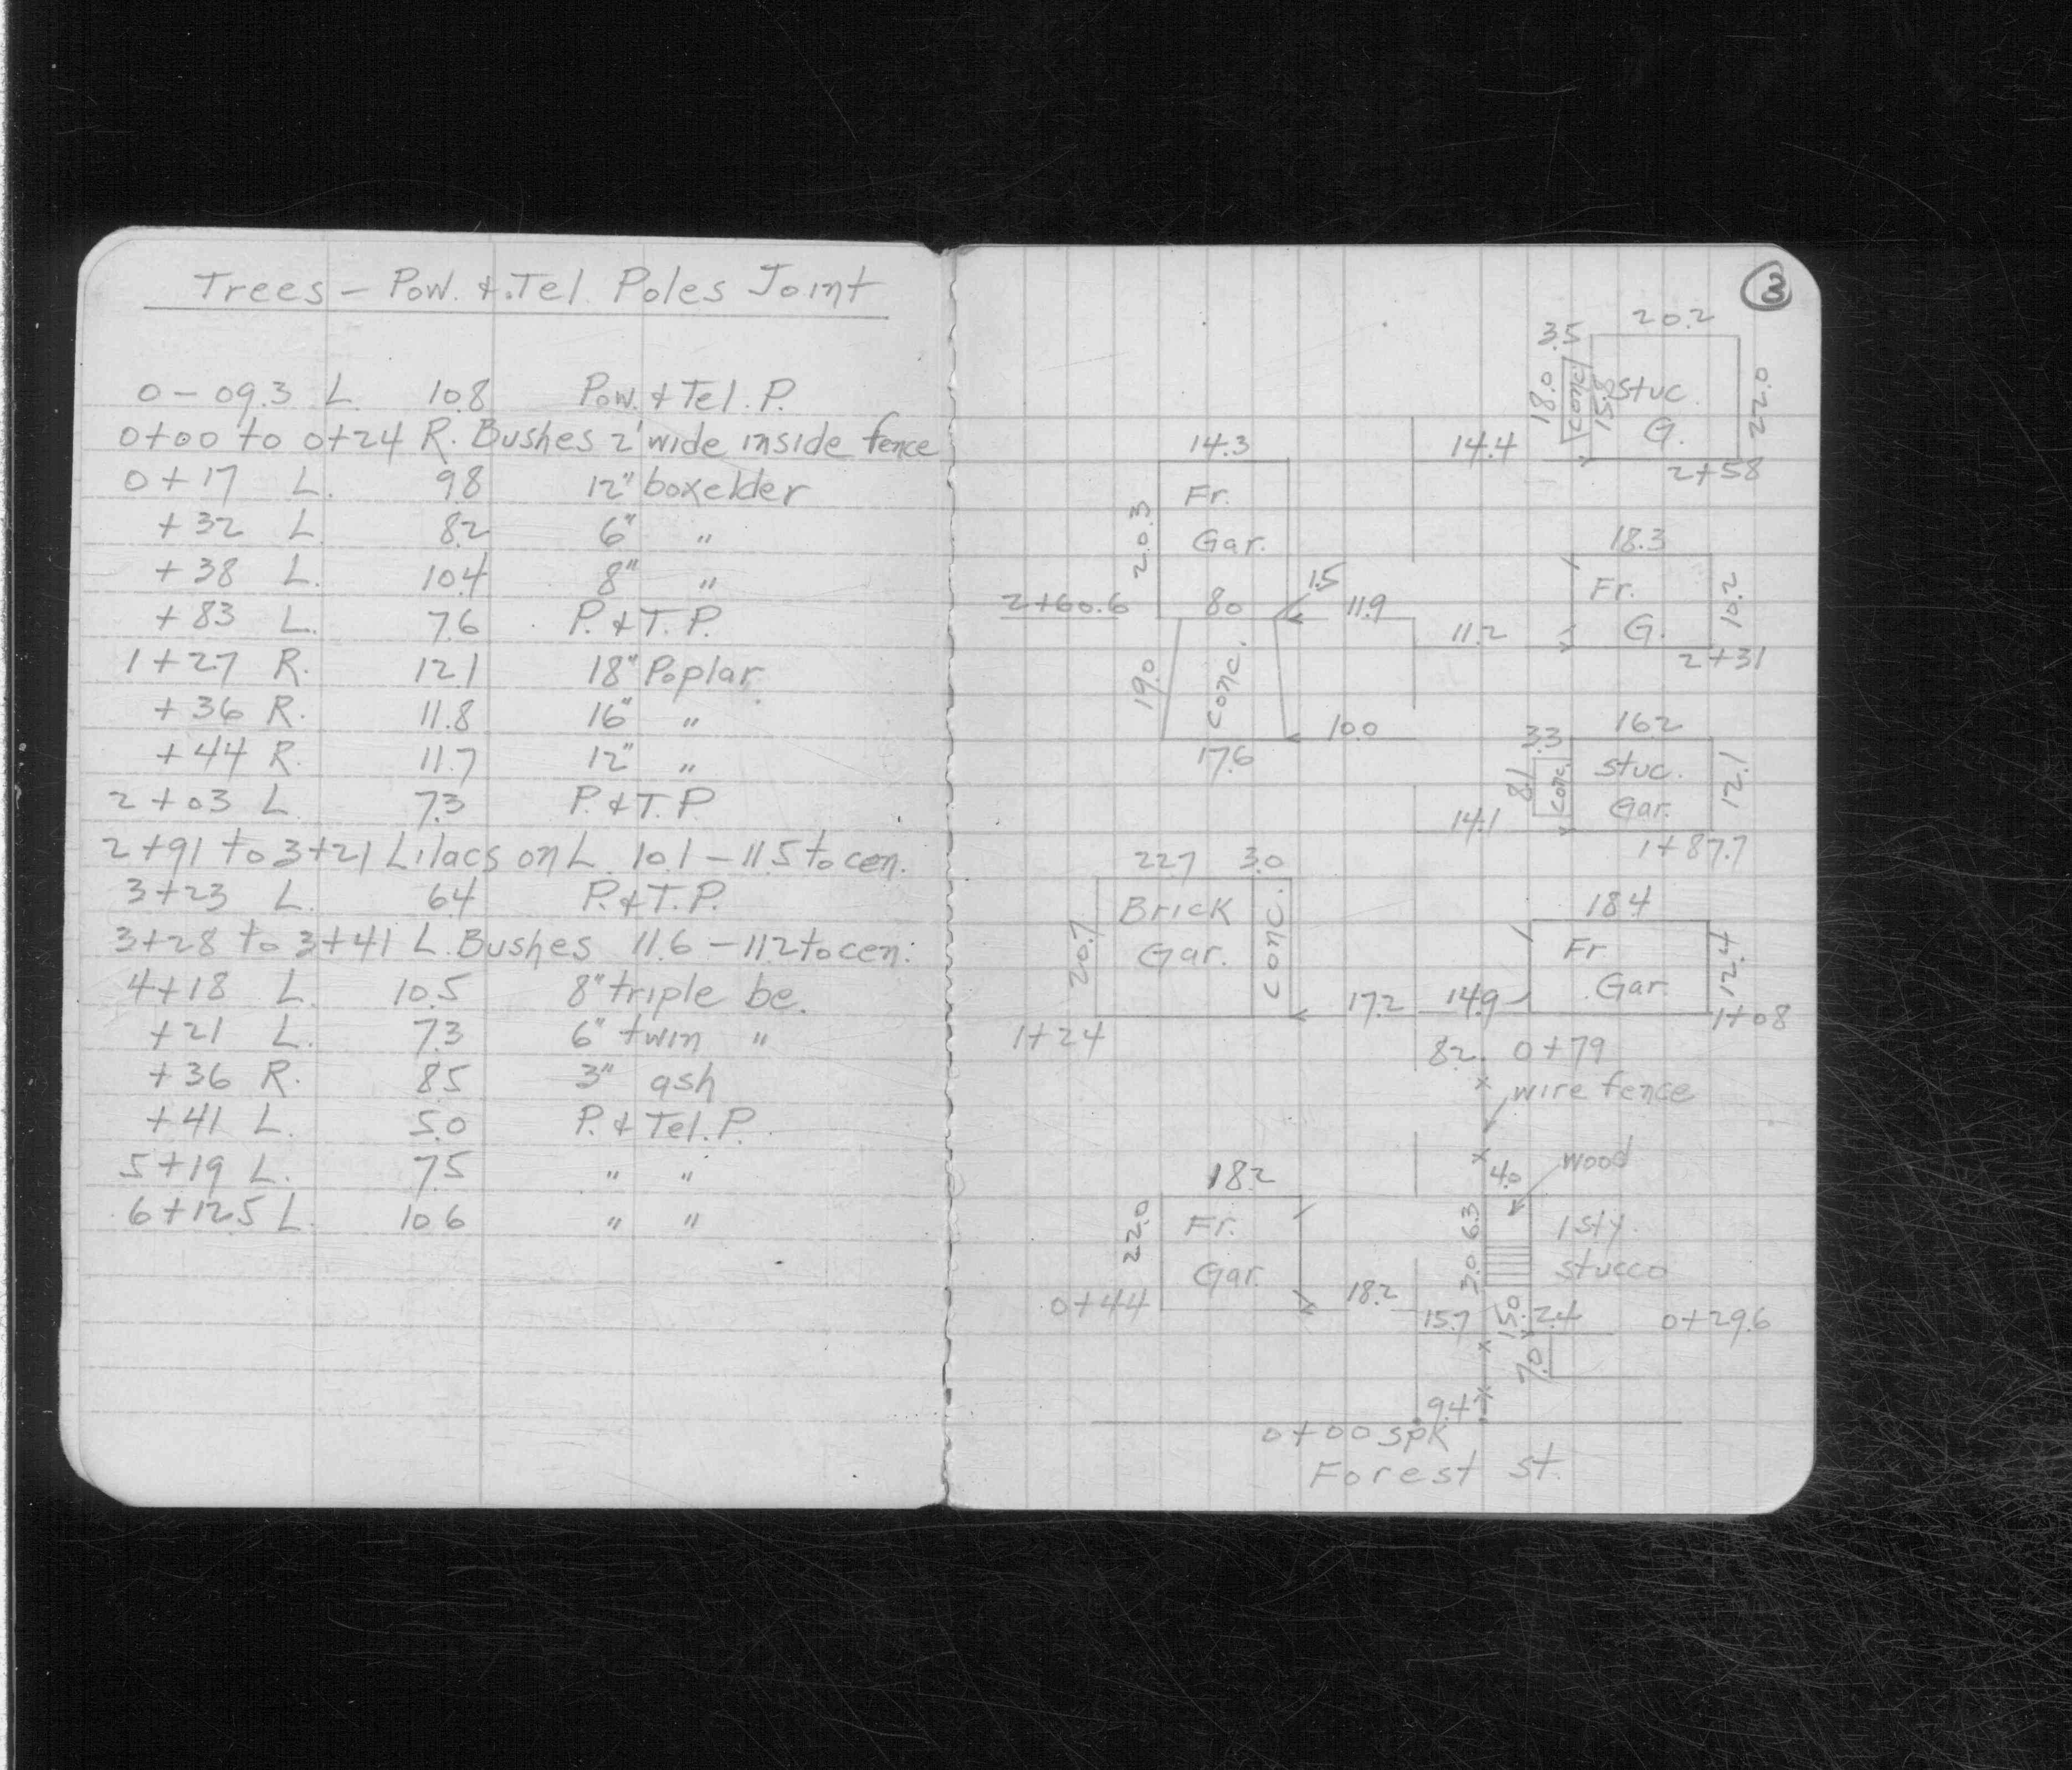 Trees - Pow. & Tel. Poles Joint
0-09.3 L. 10.8 Pow. & Tel. P.
0+00 to 0+24 R. Bushes 2' wide inside fence
0+17 L. 9.8 12" boxelder
+32 L. 8.2 6" "
+38 L. 10.4 8" "
+83 L. 7.6 P. & T. P.
1+27 R. 12.1 18" Poplar
+36 R. 11.8 16" "
+44 R. 11.7 12" "
2+03 L. 7.3 P. & T. P.
2+91 to 3+21 Lilacs on L. 10.1 - 11.5 to cen.
3+23 L. 6.4 P. & T. P.
3+28 to 3+41 L. Bushes 11.6 - 11.2 to cen.
4+18 L. 10.5 8" triple be.
+21 L. 7.3 6" twin "
+36 R. 8.5 3" ash
+41 L. 5.0 P. & Tel. P.
5+19 L. 7.5 " "
6+12.5 L. 10.6 " "
3
20.2
3.5
18.0 Conc. 15.8 Stuc. 22.0
G.
14.4
2+58
14.3
Fr.
Gar.
20.3
18.3
Fr.
G.
10.2
1.5
2+60.6 8.0 11.9
11.2
2+31
19.0 Conc.
10.0
17.6
16.2
3.3
8.1 Conc. Stuc. 12.1
Gar.
14.1
1+87.7
22.7 3.0
Brick
Gar.
20.7 Conc.
18.4
Fr
Gar.
12.4
17.2 14.9
1+24
1+08
8.2 0+79
wire fence
wood
4.0
18.2
22.0 Fr.
Gar.
6.3 1 sty
3.0 stucco
0+44 18.2
15.7 15.0 2.4 0+29.6
7.0
9.4
0+00 spk
Forest St.